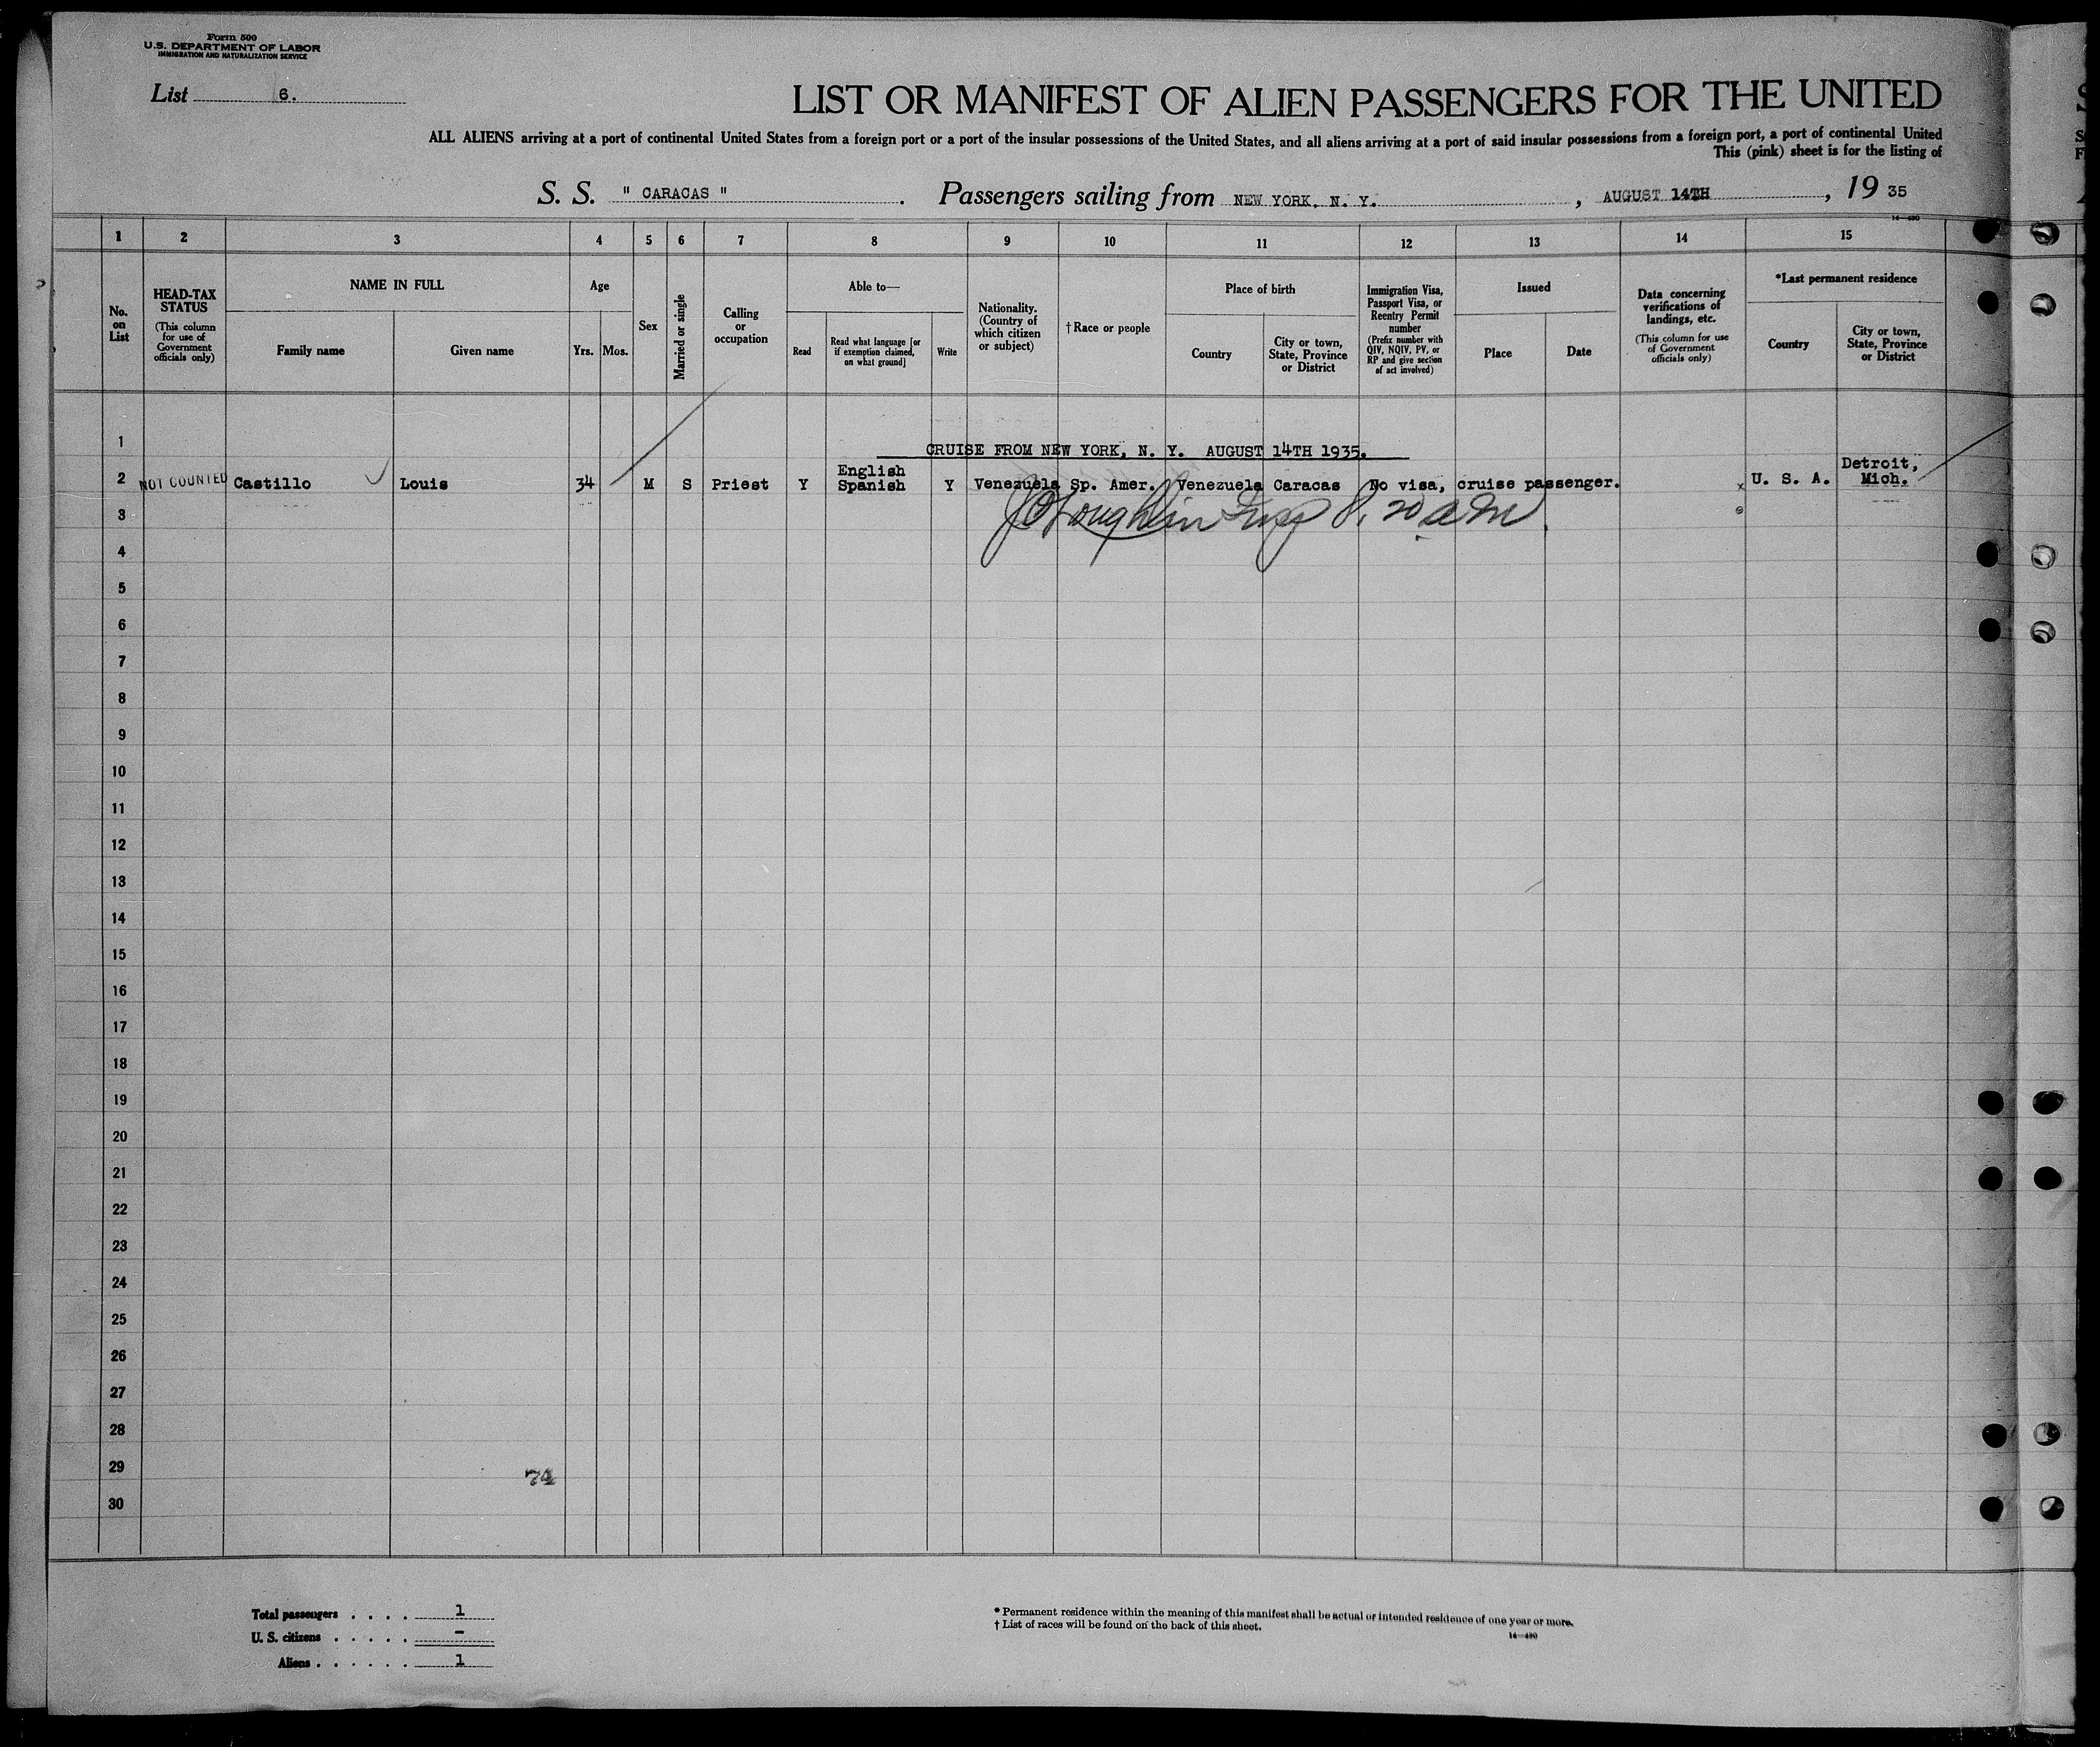 Form 500
U.S. DEPARTMENT OF LABOR
IMMIGRATION AND NATURALIZATION SERVICE
List 6.
LIST OR MANIFEST OF ALIEN PASSENGERS FOR THE UNITED
ALL ALIENS arriving at a port of continental United States from a foreign port or a port of the insular possessions of the United States, and all aliens arriving at a port of said insular possessions from a foreign port, a port of continental United
This (pink) sheet is for the listing of
S. S. " CARACAS " . Passengers sailing from NEW YORK, N. Y. , AUGUST 14TH , 19 35
14—480
1 2 3 4 5 6 7 8 9 10 11 12 13 14 15
No. on List
HEAD-TAX STATUS
(This column for use of Government officials only)
NAME IN FULL
Family name
Given name
Age
Yrs. Mos.
Sex
Married or single
Calling or occupation
Able to—
Read
Read what language [or if exemption claimed, on what ground]
Write
Nationality. (Country of which citizen or subject)
†Race or people
Place of birth
Country
City or town, State, Province or District
Immigration Visa, Passport Visa, or Reentry Permit number
(Prefix number with QIV, NQIV, PV, or RP and give section of act involved)
Issued
Place
Date
Data concerning verifications of landings, etc.
(This column for use of Government officials only)
*Last permanent residence
Country
City or town, State, Province or District
1
CRUISE FROM NEW YORK, N. Y. AUGUST 14TH 1935.
2 NOT COUNTED Castillo Louis 34 M S Priest Y English Spanish Y Venezuela Sp. Amer. Venezuela Caracas No visa, cruise passenger. x U. S. A. Detroit, Mich.
3 8.20 AM
4
5
6
7
8
9
10
11
12
13
14
15
16
17
18
19
20
21
22
23
24
25
26
27
28
29
74
30
Total passengers . . . . 1
U. S. citizens . . . . . –
Aliens . . . . . . 1
* Permanent residence within the meaning of this manifest shall be actual or intended residence of one year or more.
† List of races will be found on the back of this sheet.
14—480